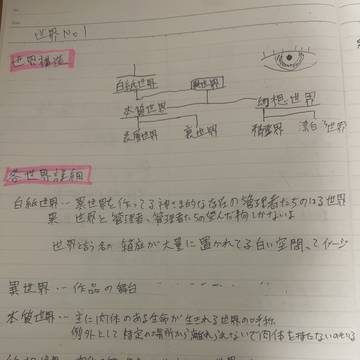 世界No1
世界構造
白紙世界
異世界
本質世界
幻想世界
表層世界
裏世界
精霊界
漂白世界
各世界詳細
白紙世界‥異世界を作ってる神さま的な存在の管理者たちのいる世界
異世界と管理者、管理者たちの望んだ物しかないよ
世界と言う名の箱庭が大量に置かれてる白い空間ってイメージ
異世界‥作品の舞台
本質世界‥主に肉体のある生命が生きれる世界の呼称
例外として特定の場所から離れられないで肉体を持たない